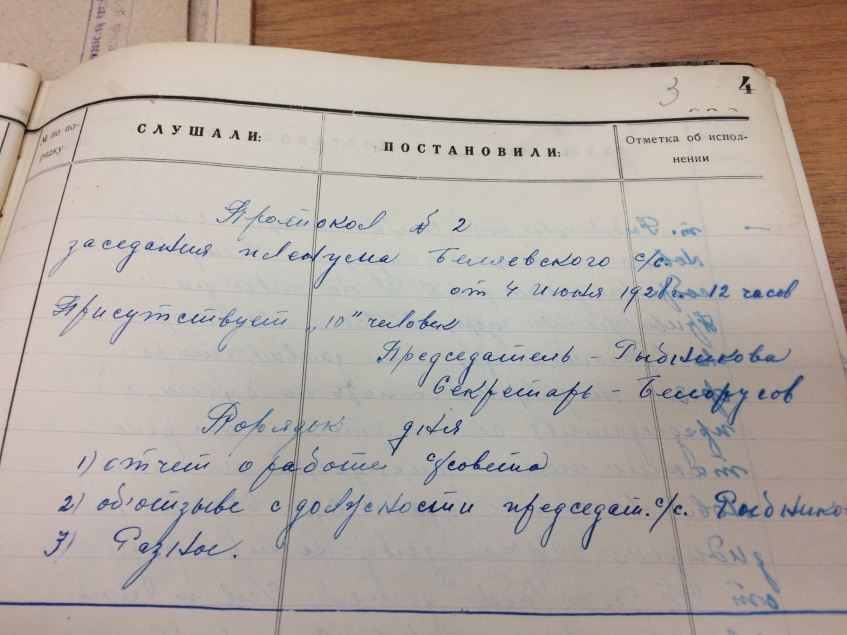 3 4
№ по по-
рядку
СЛУШАЛИ:
ПОСТАНОВИЛИ:
Отметка об испол-
нении
Протокол № 2
заседания пленума Беляевского с/с.
от 4 июня 1928 г. 12 часов
Присутствует „10" человек
Председатель – Рыбникова
Секретарь – Белорусов
Порядок дня
1) отчет о работе с/совета
2) об отзыве с должности председат. с/с. Рыбнико
3) Разное.